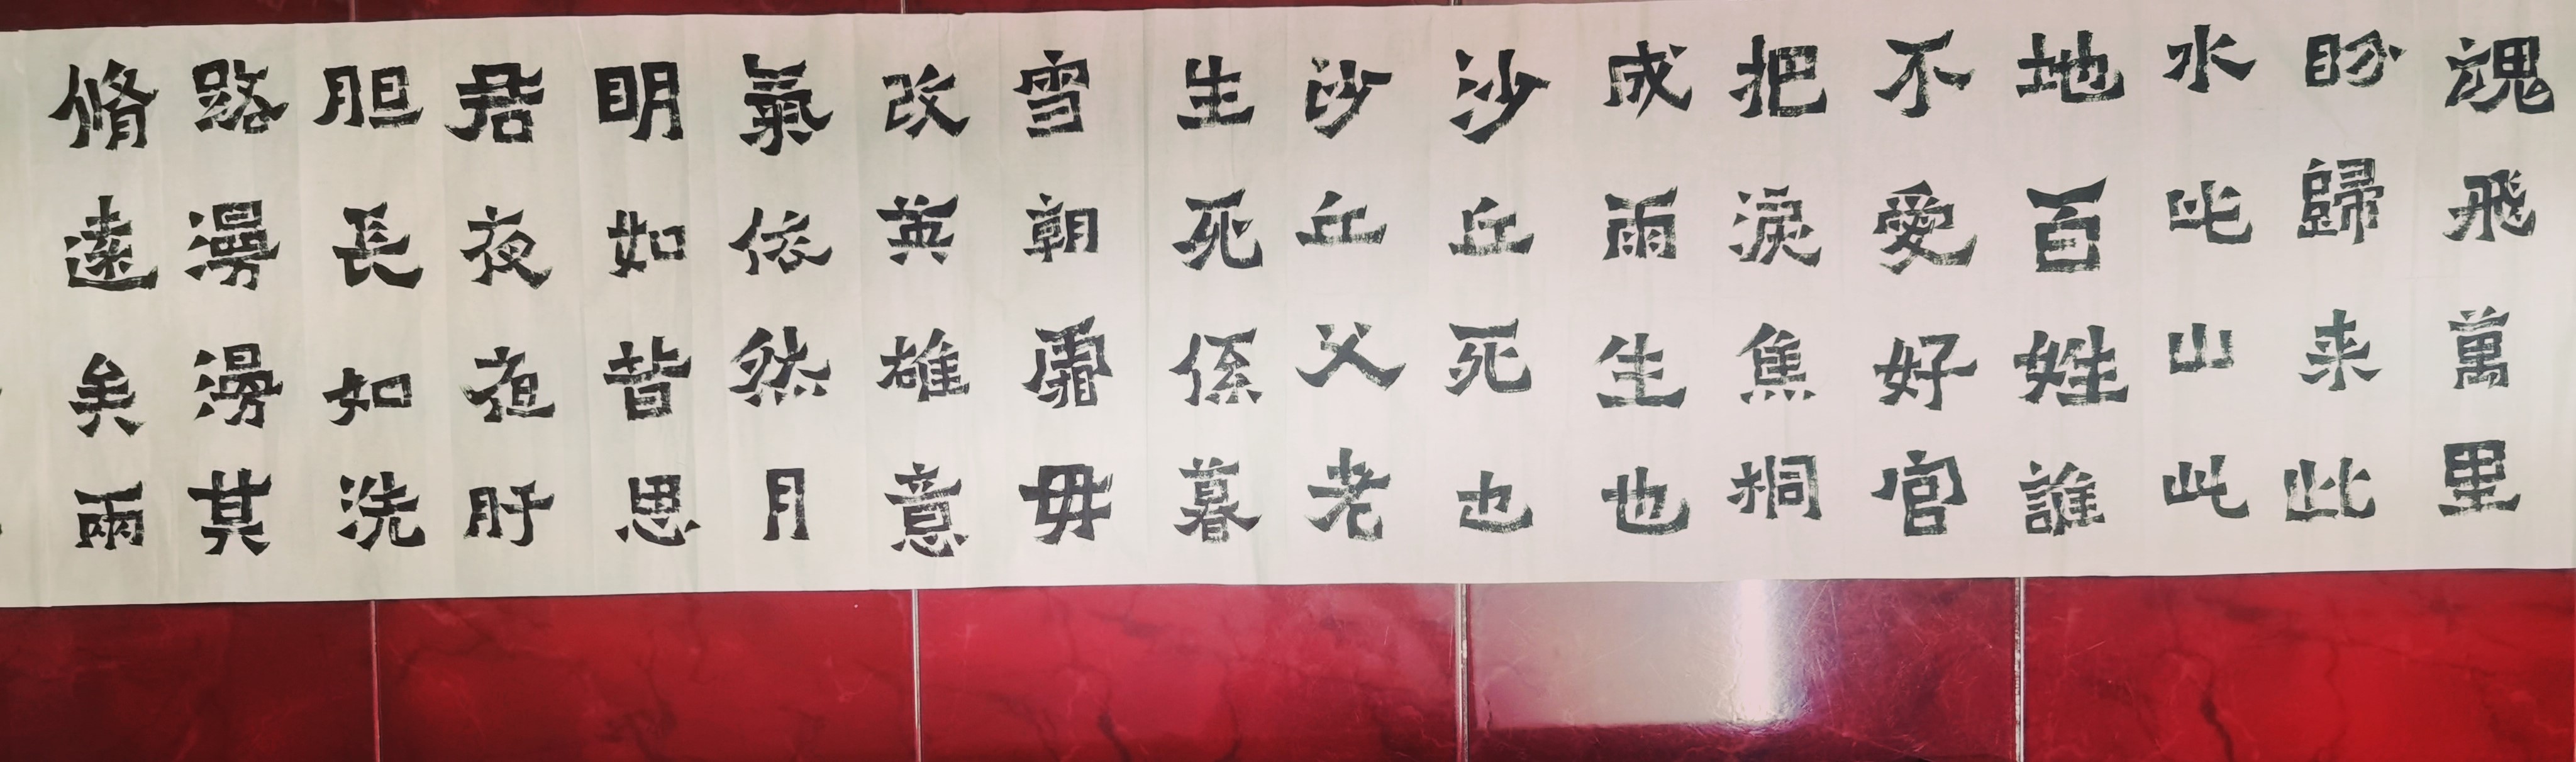 魂飛萬里
盼歸来此
水此山此
地百姓誰
不愛好官
把淚焦桐
成雨生也
沙丘死也
沙丘父老
生死係暮
雪朝霜毋
改英雄意
氣依然月
明如昔思
君夜夜肝
胆長如洗
路漫漫其
脩遠矣兩